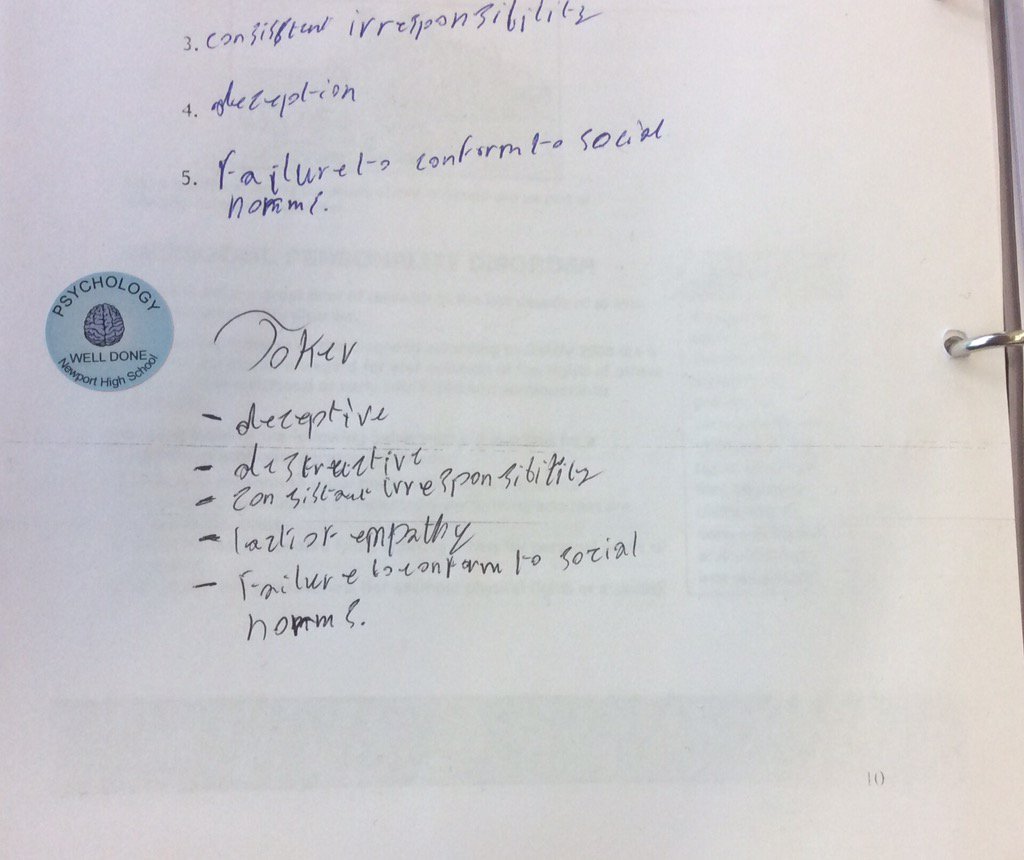 3. consistent irresponsibility
4. deception
5. Failure to conform to social
norms.
PSYCHOLOGY
WELL DONE
Newport High School
Joker
- deceptive
- destructive
- consistant irresponsibility
- lack of empathy
- Failure to conform to social
norms.
10